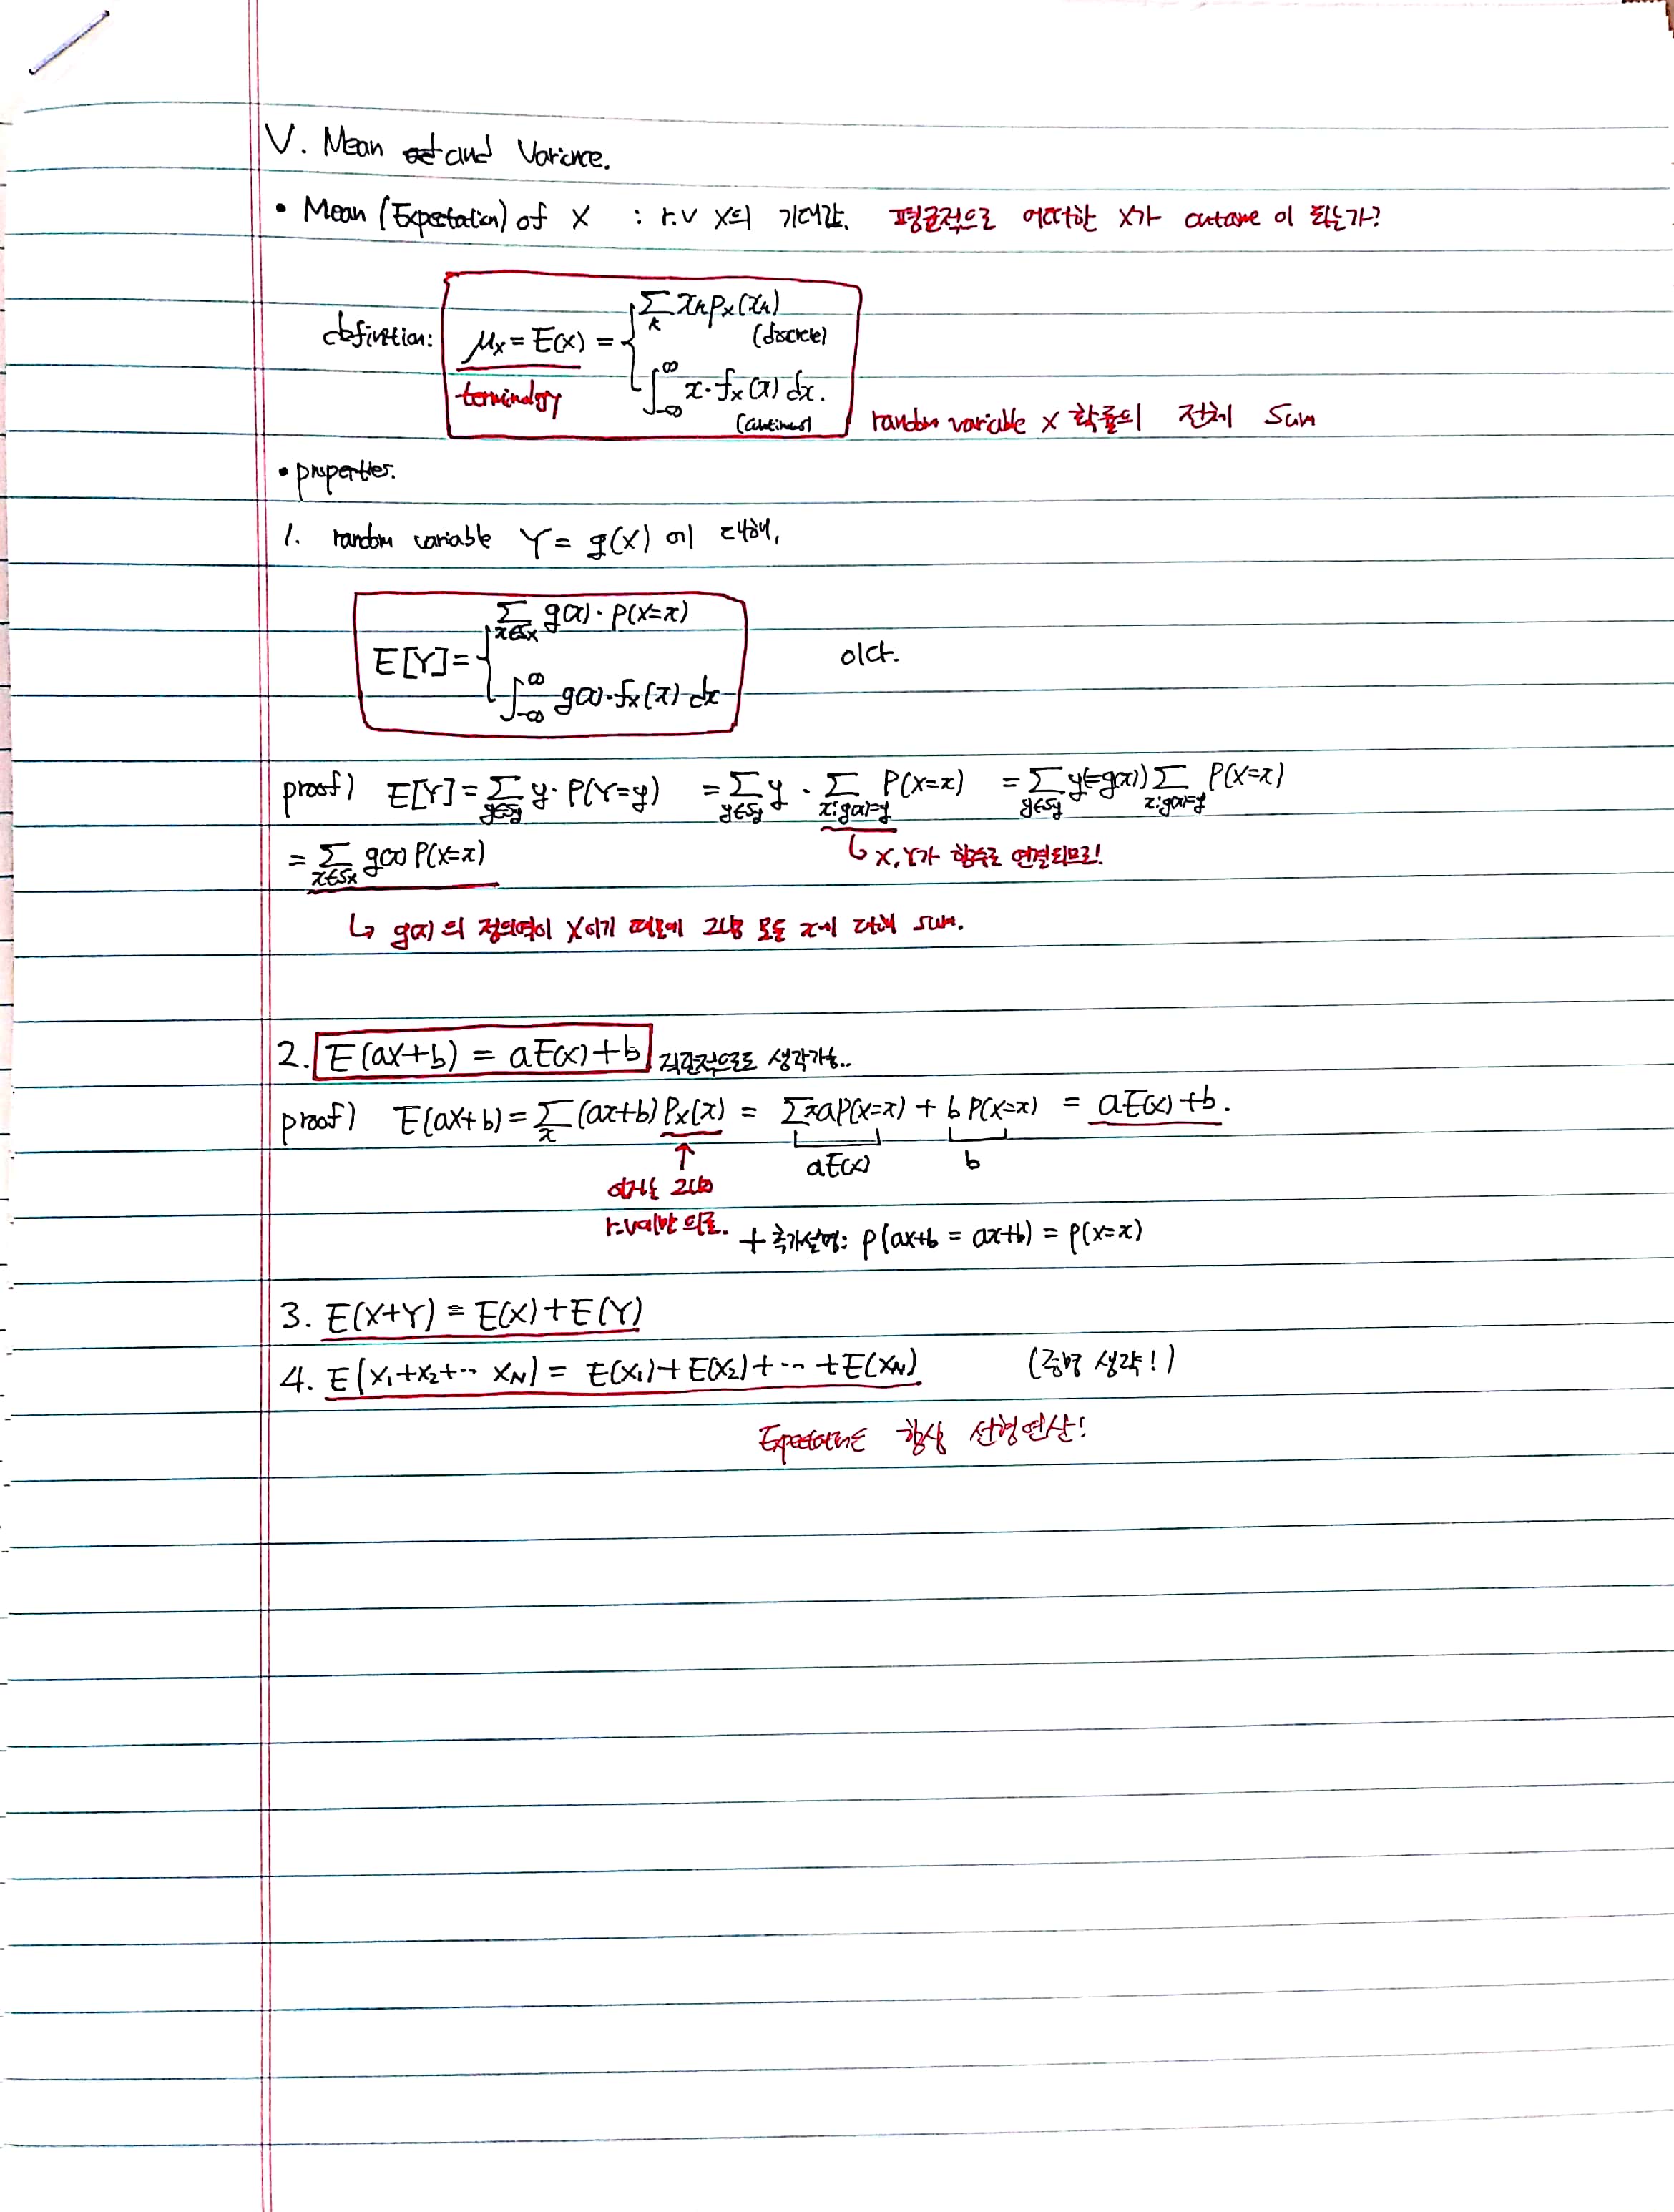 V. Mean and Variance.
• Mean (Expectation) of X : r.v X의 기대값. 평균적으로 어떠한 X가 outcome 이 되는가?
definition: μx = E(X) = { Σ_k xₖ pₓ(xₖ) (discrete)
∫_{-∞}^{∞} x · fₓ(x) dx. (continuous)
terminology
random variable X 확률의 전체 sum
• properties.
1. random variable Y = g(X) 에 대해,
E[Y] = { Σ_{x∈Sx} g(x) · P(X=x)
∫_{-∞}^{∞} g(x) · fₓ(x) dx
이다.
proof) E[Y] = Σ_{y∈Sy} y · P(Y=y) = Σ_{y∈Sy} y · Σ_{x:g(x)=y} P(X=x) = Σ_{y∈Sy} y(=g(x)) Σ_{x:g(x)=y} P(X=x)
↳ X, Y가 함수로 연결되므로!
= Σ_{x∈Sx} g(x) P(X=x)
↳ g(x) 의 정의역이 X이기 때문에 그냥 모든 x에 대해 sum.
2. E(aX+b) = aE(X)+b 직관적으로도 생각가능..
proof) E(aX+b) = Σ_x (ax+b) Pₓ(x) = Σxa P(X=x) + b P(X=x) = aE(X)+b.
↑ aE(X) b
이거는 그냥
r.v에만 의존.
+ 추가설명: P(aX+b = ax+b) = P(X=x)
3. E(X+Y) = E(X)+E(Y)
4. E(X₁+X₂+··· X_N) = E(X₁)+E(X₂)+··· +E(X_N) (증명 생략!)
항상 선형연산!